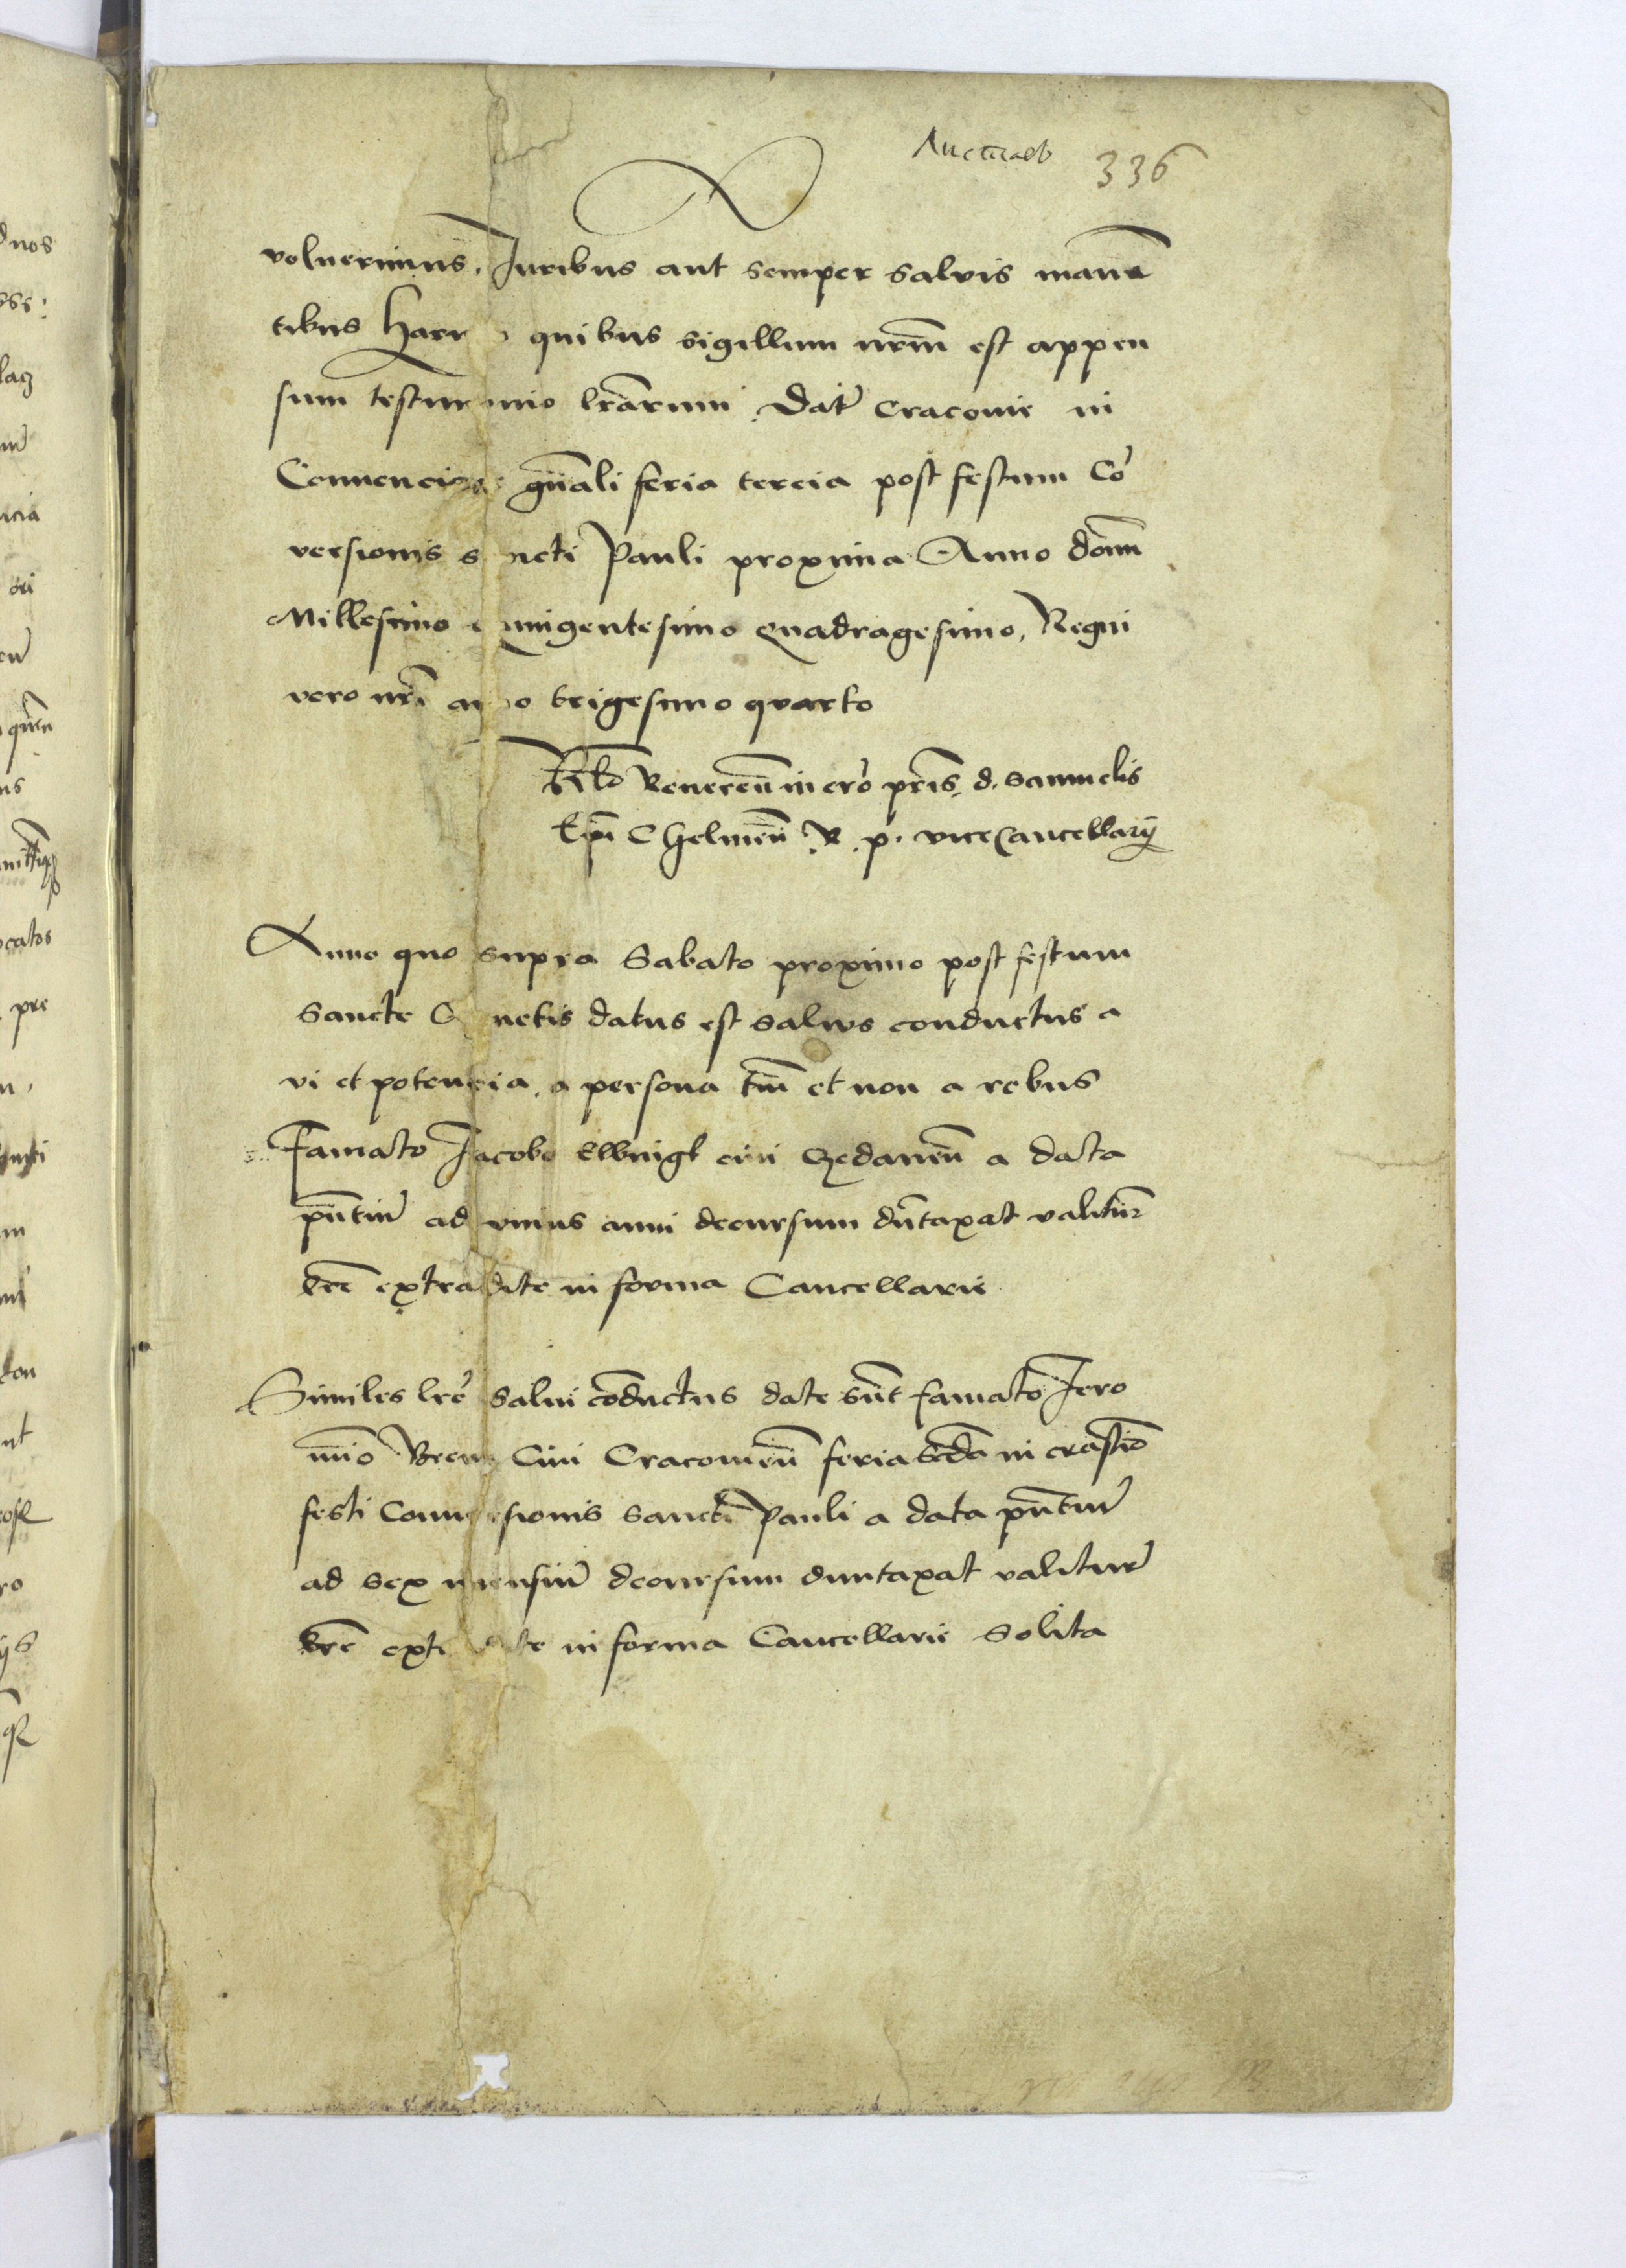 336
voluerimus, Juribus aut semper salvis manē
tibus Har quibus sigillum nrm̄ est appen
sum testimonio lrārum. Dat̄ Cracovie in
Convencione gn̄ali feria tercia post festum Cō
versionis sancti Pauli proxima Anno domī
Millesimo quingentesimo quadragesimo, Regni
vero nrī anno trigesimo quarto
Rlo Reveren̄ in cro prīs. d. Samuelis
Epī Chelmen̄ R. p. viceCancellarij
Anno quo supra Sabato proximo post festum
Sancte Agnetis datus est salvus conductus a
vi et potencia, a persona tm̄ et non a rebus
Famato Jacobo civi Gedanen̄ a data
pn̄tiu̅ ad unius anni decursum dūtaxat valitur̄
lrē extradite in forma Cancellarie
Similes lrē salvi cōductus date sūt famato Jero
nimo civi Cracovien̄ feria scda in crastīo
festi Conversionis sancti Pauli a data pn̄tiu̅
ad sex mensiu̅ decursum duntaxat valitur̄
lrē extradite in forma Cancellarie solita